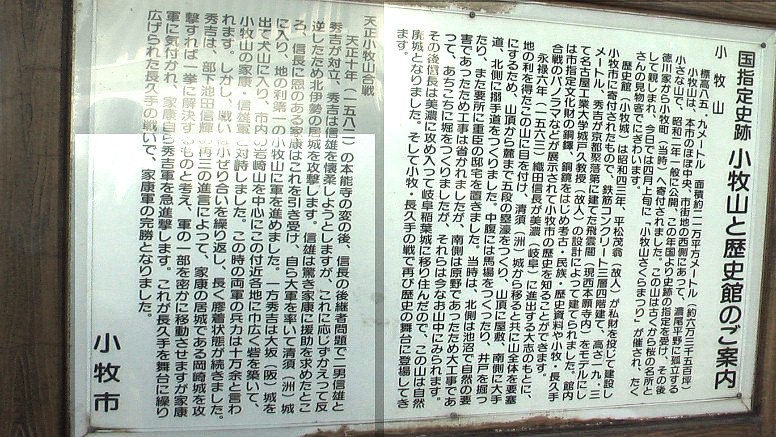 国指定史跡 小牧山と歴史館のご案内
小牧山
標高八五.九メートル 面積約二一万平方メートル(約六万三千五百坪)
小牧山は、本市のほぼ中央、市街地の西側にあって、濃尾平野に孤立する
小さな山で、昭和二年一般に公開、この年国より史跡の指定を受け、その後
徳川家から小牧町(当時)へ寄付されました。この山は古くから桜の名所と
して親しまれ、今日では四月上旬に「小牧山さくらまつり」が催され、たく
さんの見物客でにぎわいます。
歴史館(小牧城)は昭和四三年、平松茂翁(故人)が私財を投じて建設し
小牧市に寄付されたもので、鉄筋コンクリート三層四階建て、高さ一九.三
メートル、秀吉が京都聚落第に建てた飛雲閣(現西本願寺内)をモデルにし
て名古屋工業大学城戸久教授(故人)の設計によって建てられました。館内
は市指定文化財の銅鐸、銅鏡をはじめ考古・民族・歴史資料や小牧・長久手
合戦のパノラマなどが展示されて小牧市の歴史を知ることができます。
永禄六年(一五六三)織田信長が美濃(岐阜)に進出する大志のもとに、
地の利を得たこの山に目を付け、清須(洲)城から移ると共に山全体を要塞
にするため、山頂から麓まで五段の塁濠をつくり、山頂に屋敷、南側に大手
道、北側に搦手道をつくりました。中腹には馬場をつくったり、井戸を掘っ
たり、また要所に重臣の邸宅を置きました。当時は、北側は池沼で自然の要
害であったため工事は省かれましたが、南側は原野であったため大工事であ
って、あちこちに堀をつくりましたが、それらは今なお山中にみられます。
その後信長は美濃に攻め入って岐阜稲葉城に移り住んだので、この山は自然
廃城となりました。そして小牧・長久手の戦で再び歴史の舞台に登場してき
ます。
天正小牧山合戦
天正十年(一五八二)の本能寺の変の後、信長の後継者問題で二男信雄と
秀吉が対立、秀吉は信雄を懐柔しようとしますが、これに応じずかえって反
逆したため北伊勢の居城を攻撃します。信雄は驚き家康に援助を求めたとこ
ろ、信長に恩のある家康はこれを引き受け、自ら大軍を率いて清須(洲)城
に入り、地の利第一の小牧山に軍を進めました。一方秀吉は大坂(阪)城を
出て犬山に入り、市内の岩崎山を中心にこの付近各地に十広く砦を築いて、
小牧山の家康・信雄軍と対峙しました。この時の両軍の兵力は十万余と言わ
れます。しかし、戦いは小ぜり合いを繰り返し、長く膠着状態が続きました。
秀吉は、部下池田信輝の再三の進言によって、家康の居城である岡崎城を攻
撃すれば一挙に解決するものと考え、軍の一部を密かに移動させますが家康
軍に気付かれ、家康自ら秀吉軍を急進撃します。これが長久手を舞台に繰り
広げられた長久手の戦いで、家康軍の完勝となりました。
小牧市